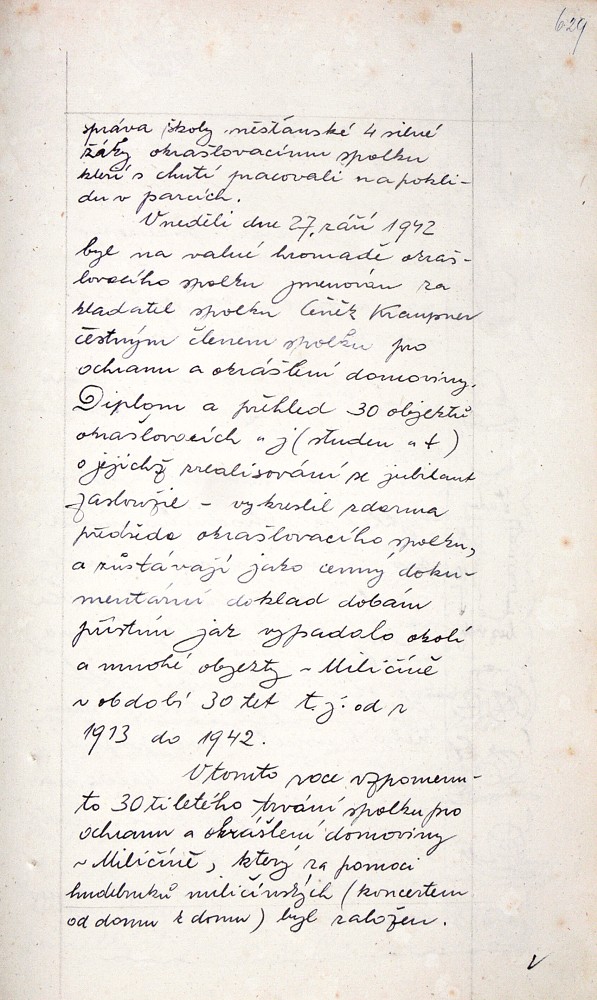 629
správa školy měšťanské 4 silné
žáky okrašlovacímu spolku
kteří s chutí pracovali na pokli-
du v parcích.
V neděli dne 27. září 1942
byl na valné hromadě okraš-
lovacího spolku jmenován za
kladatel spolku Čeněk Kraupner
čestným členem spolku pro
ochranu a okrášlení domoviny.
Diplom a přehled 30 objektů
okrašlovacích a j (studen a t)
o jejichž zrealisování se jubilant
zasloužil – vykreslil zdarma
předseda okrašlovacího spolku,
a zůstávají jako cenný doku-
mentární doklad dobám
příštím jak vypadalo okolí
a mnohé objekty v Miličíně
v období 30 let t.j. od r
1913 do 1942.
V tomto roce vzpomenu-
to 30tiletého trvání spolku pro
ochranu a okrášlení domoviny
v Miličíně, který za pomoci
hudebníků miličínských (koncertem
od domu k domu) byl založen.